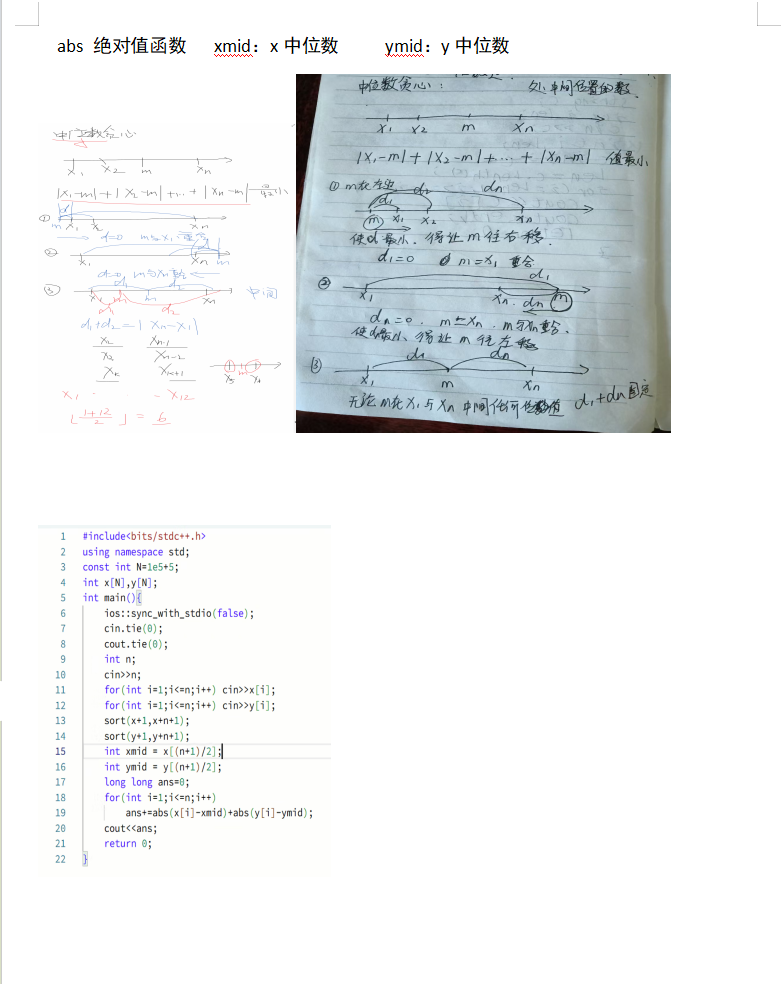 abs 绝对值函数 xmid：x 中位数 ymid：y 中位数
中位数贪心
x₁ x₂ m xₙ
|x₁-m|+|x₂-m|+...+|xₙ-m|
①
m x₁ x₂ xₙ
d=0 m与x₁重合
②
x₁ xₙ m
d=0, m与xₙ重合
③
d₁ d₂
x₁ m xₙ 中间
d₁ d₂
d₁+d₂=|xₙ-x₁|
x₂ xₙ₋₁
x₃ xₙ₋₂
xₖ xₖ₊₁
m
x₁ . . - x₁₂
⌊(1+12)/2⌋ = 6
中位数贪心： 处中间位置的数
x₁ x₂ m xₙ
|x₁-m|+|x₂-m|+...+|xₙ-m| 值最小
① m在左边
d₁ d₂ dₙ
m x₁ x₂ xₙ
使d最小，得让m往右移.
d₁=0 m=x₁ 重合
②
d₁
x₁ xₙ dₙ m
dₙ=0. m=xₙ. m与xₙ重合.
使d最小、得让m往左移
③
d₁ dₙ
x₁ m xₙ
无论m在x₁与xₙ中间任何位置 d₁+dₙ固定
1 #include<bits/stdc++.h>
2 using namespace std;
3 const int N=1e5+5;
4 int x[N],y[N];
5 int main(){
6 ios::sync_with_stdio(false);
7 cin.tie(0);
8 cout.tie(0);
9 int n;
10 cin>>n;
11 for(int i=1;i<=n;i++) cin>>x[i];
12 for(int i=1;i<=n;i++) cin>>y[i];
13 sort(x+1,x+n+1);
14 sort(y+1,y+n+1);
15 int xmid = x[(n+1)/2];
16 int ymid = y[(n+1)/2];
17 long long ans=0;
18 for(int i=1;i<=n;i++)
19 ans+=abs(x[i]-xmid)+abs(y[i]-ymid);
20 cout<<ans;
21 return 0;
22 }